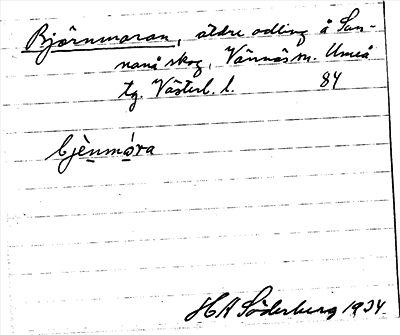 Björnmoran, äldre odling å Sun-
nanå skog, Vännäs sn. Umeå
tg. Västerb. l. 84
bjènmóra
HA Söderberg 1934.